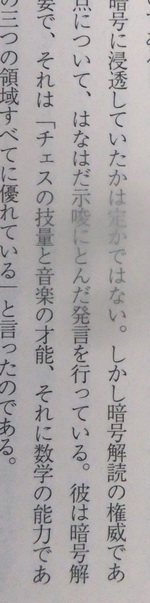 暗号に浸透していたかは定かではない。しかし暗号解読の権威であ
点について、はなはだ示唆にとんだ発言を行っている。彼は暗号解
要で、それは「チェスの技量と音楽の才能、それに数学の能力であ
の三つの領域すべてに優れている」と言ったのである。